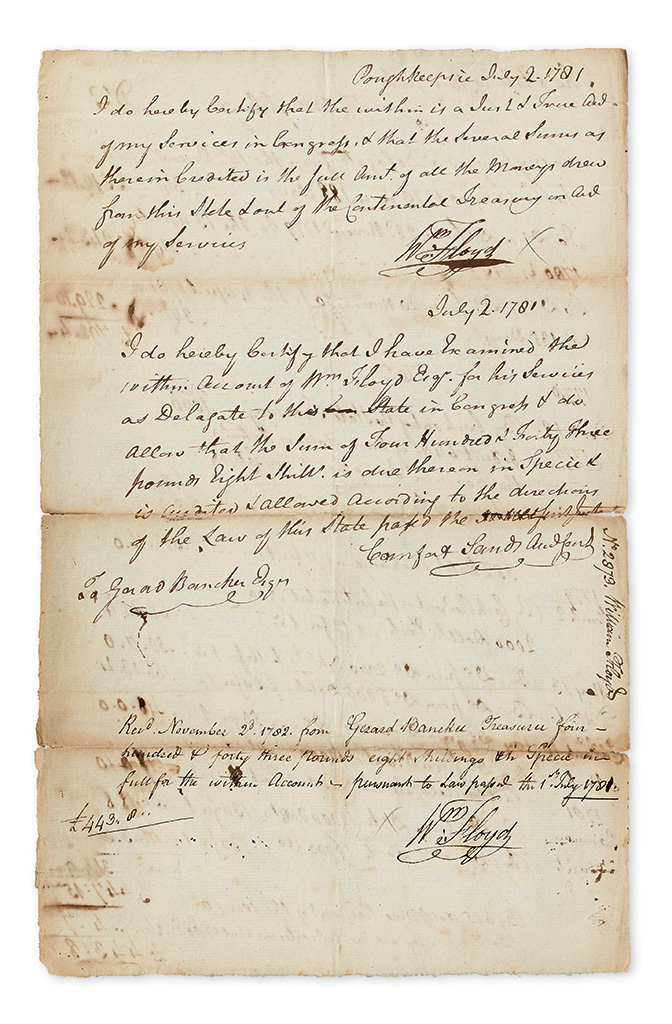 Poughkeepsie July 2. 1781.
I do hereby Certify that the within is a Just & True Acct
of my Services in Congress, & that the Several Sums as
therein Credited is the full Amt. of all the Moneys drew
from this State & out of the Continental Treasury on Acct
of my Services
Wm. Floyd
July 2. 1781
I do hereby Certify that I have Examined the
within Account of Wm Floyd Esqr. for his Services
as Delagate to this State in Congress & do
allow that the Sum of Four Hundred & Forty Three
pounds Eight Shills. is due thereon in Specie &
is Credited & allowed According to the directions
of the Law of this State passed the first
Comfort Sands Aud
To Gerad Bancker Esqr
No. 2879. William Floyd
Recd. November 2d. 1782. from Gerard Bancker Treasurer four
hundred & forty three Pounds eight Shillings in Specie in
full for the within Account pursuant to Law passed the 1st July 1781.
£443..8...
Wm. Floyd